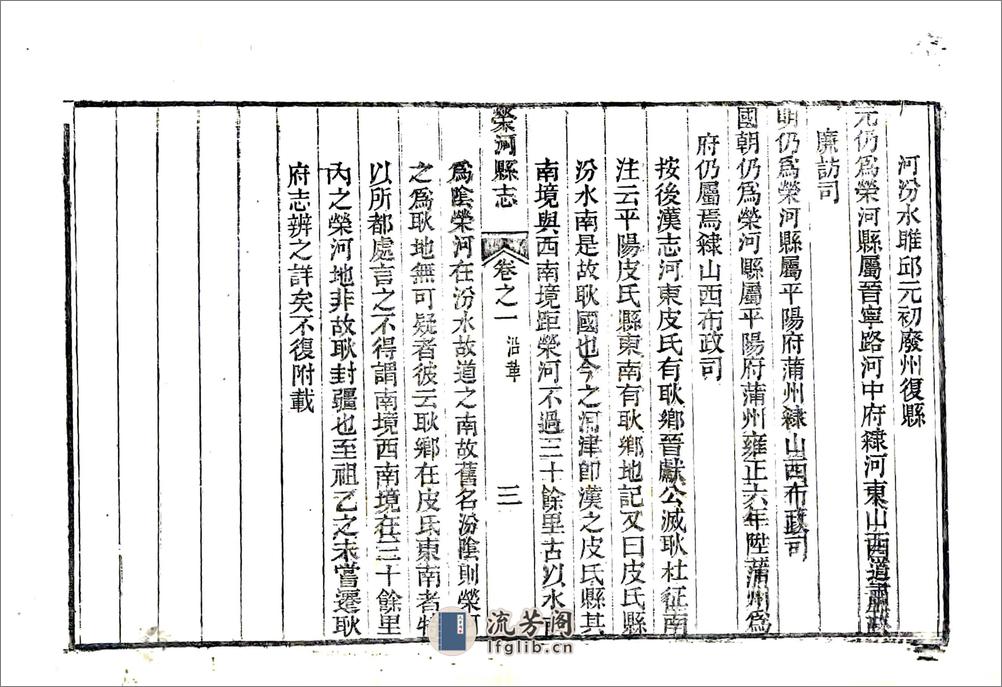 河汾水雎邱元初廢州復縣
元仍爲榮河縣屬晉寧路河中府隸河東山西道肅政
廉訪司
明仍爲榮河縣屬平陽府蒲州隸山西布政司
國朝仍爲榮河縣屬平陽府蒲州雍正六年陞蒲州爲
府仍屬焉隸山西布政司
按後漢志河東皮氏有耿鄉晉獻公滅耿杜征南
注云平陽皮氏縣東南有耿鄉地記又曰皮氏縣
汾水南是故耿國也今之河津卽漢之皮氏縣其
南境與西南境距榮河不過三十餘里古以水南
榮河縣志 卷之一 沿革 三
爲陰榮河在汾水故道之南故舊名汾陰則榮河
之爲耿地無可疑者彼云耿鄉在皮氏東南者特
以所都處言之不得謂南境西南境在三十餘里
內之榮河地非故耿封疆也至祖乙之未嘗遷耿
府志辨之詳矣不復附載
流芳阁
lfglib.cn